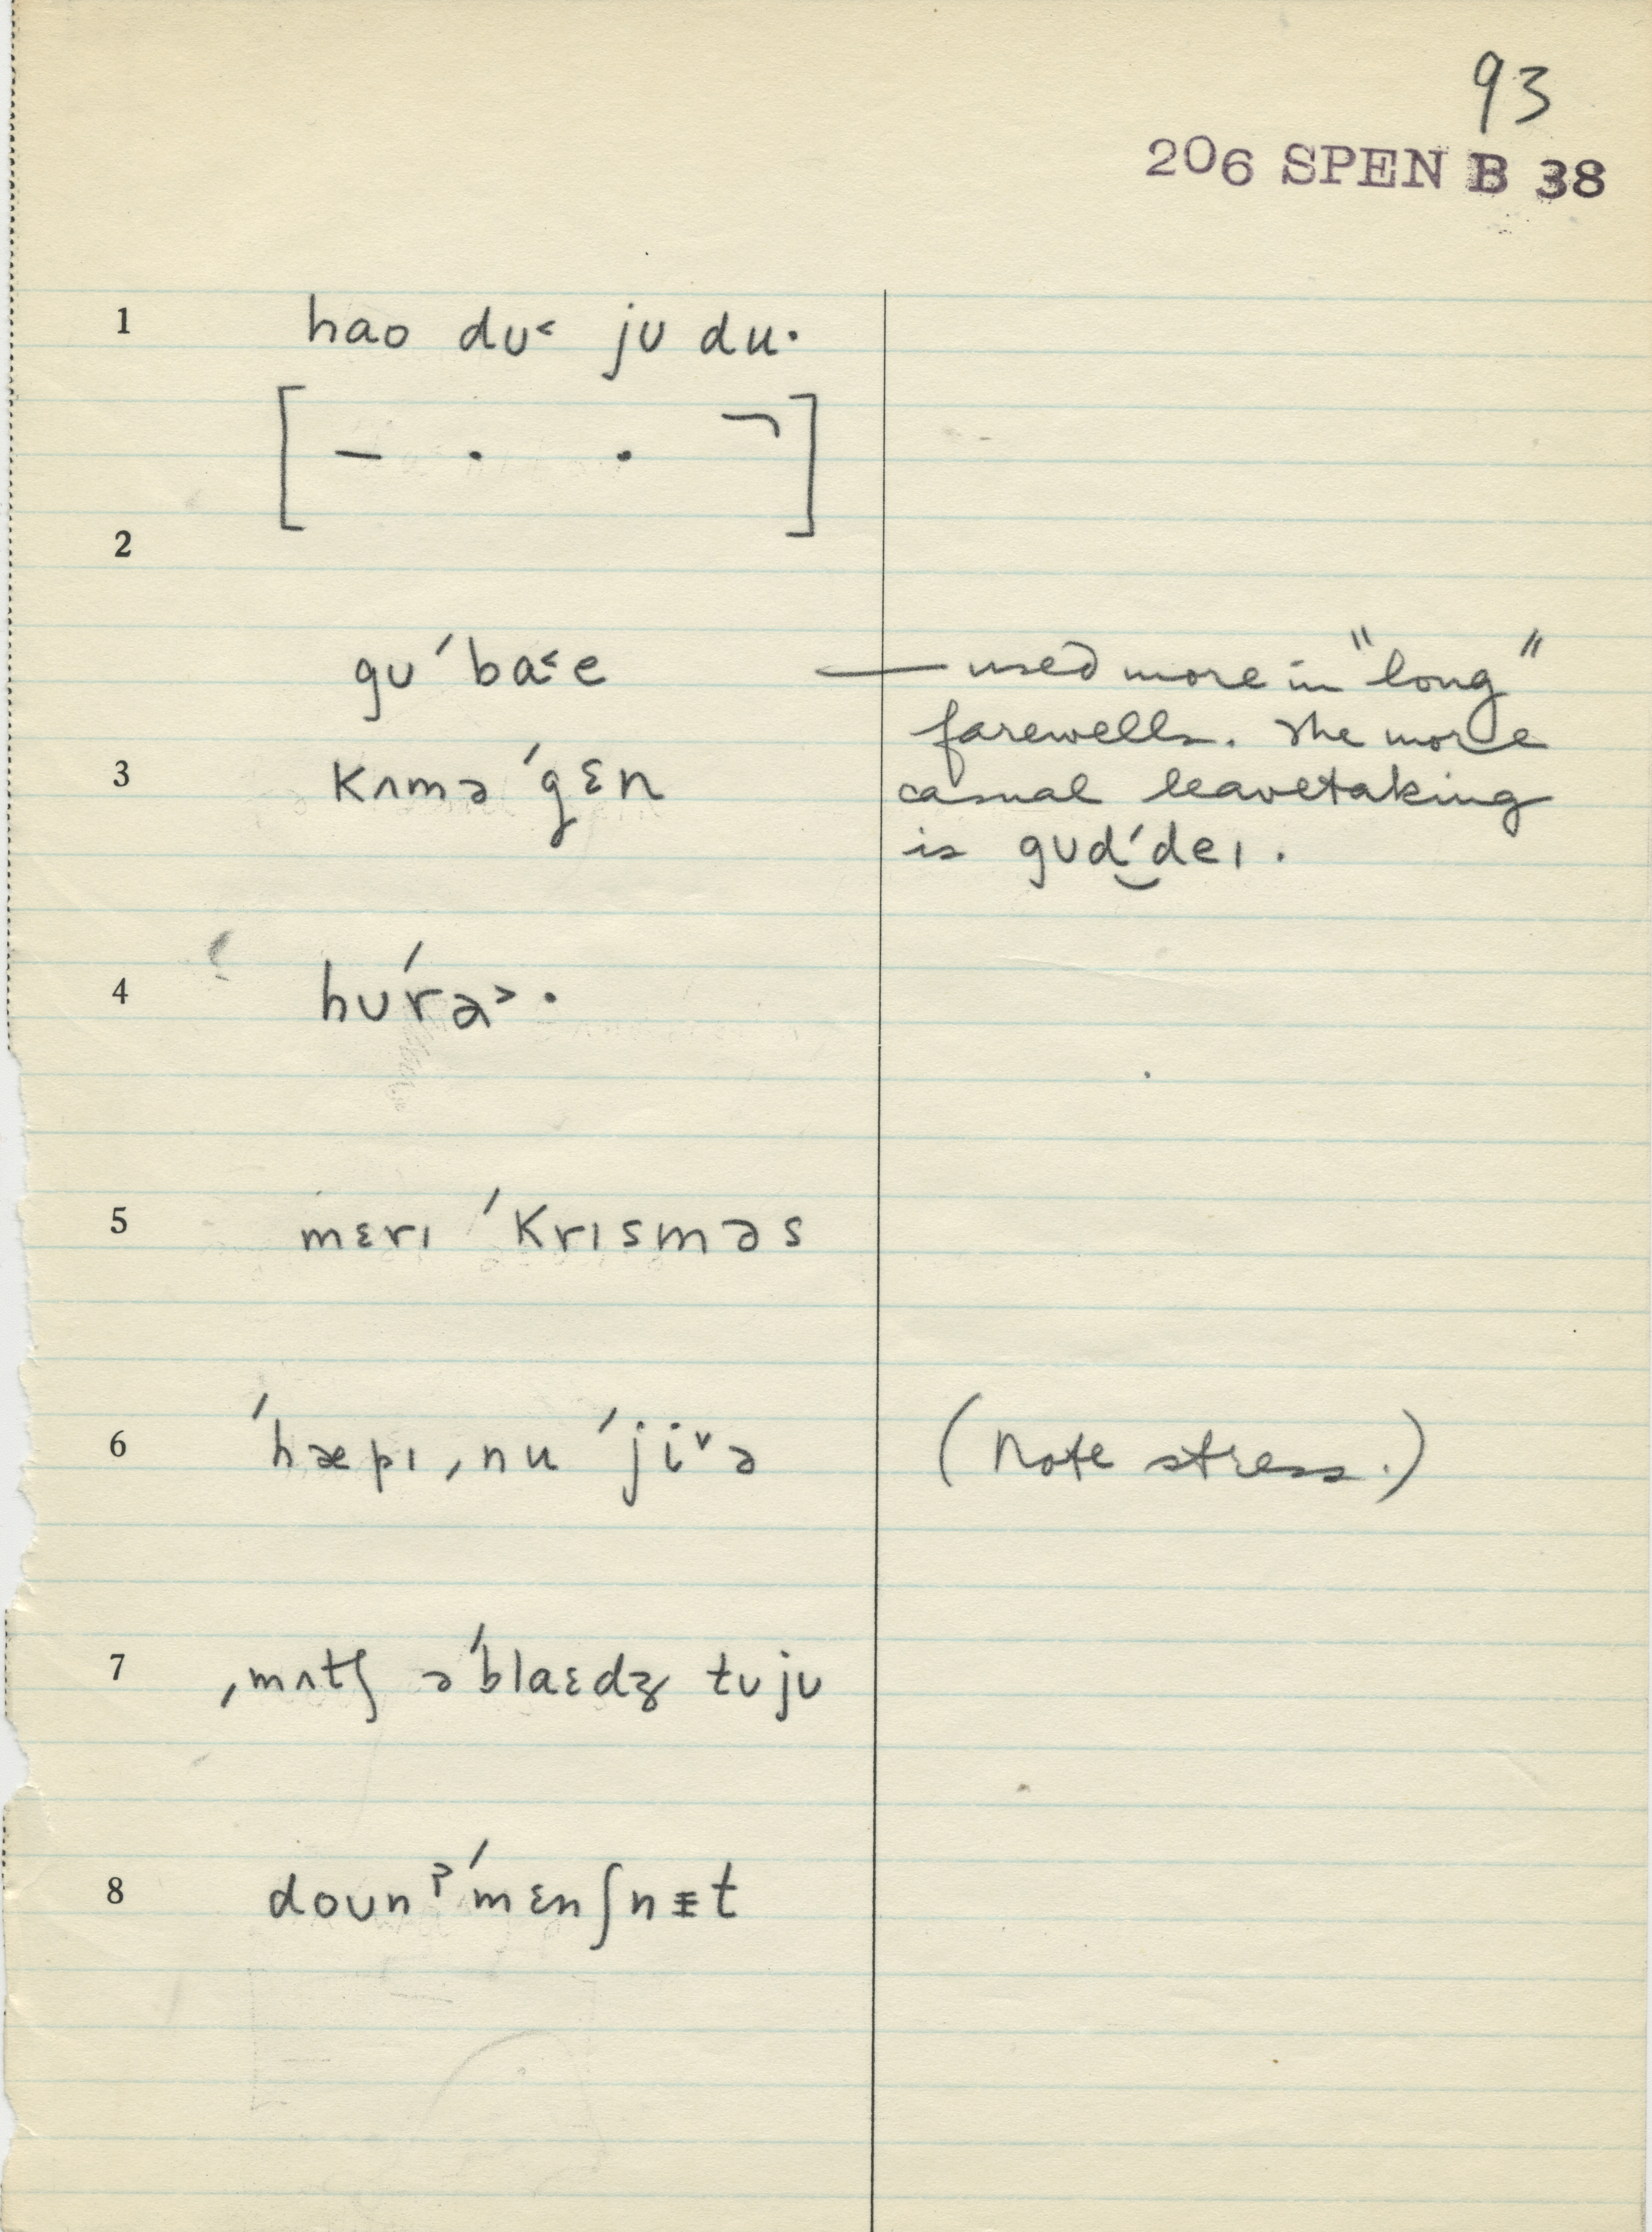 93
206 SPEN B 38
1 hao dʊ˂ jʊ du·
[ – · · ¬ ]
2
gʊ ˈba˂e — used more in "long"
farewells. The more
3 kʌmə ˈgɛn casual leavetaking
is gʊd̮ˈdeɪ.
4 hʊˈra˃·
5 mɛrɪ ˈkrɪsməs
6 ˈhæpɪ ˌnu ˈji˅ə (Note stress.)
7 ˌmʌtʃ əˈblaɛdʒ tʊjʊ
8 doʊnˀˈmɛnʃnɪt